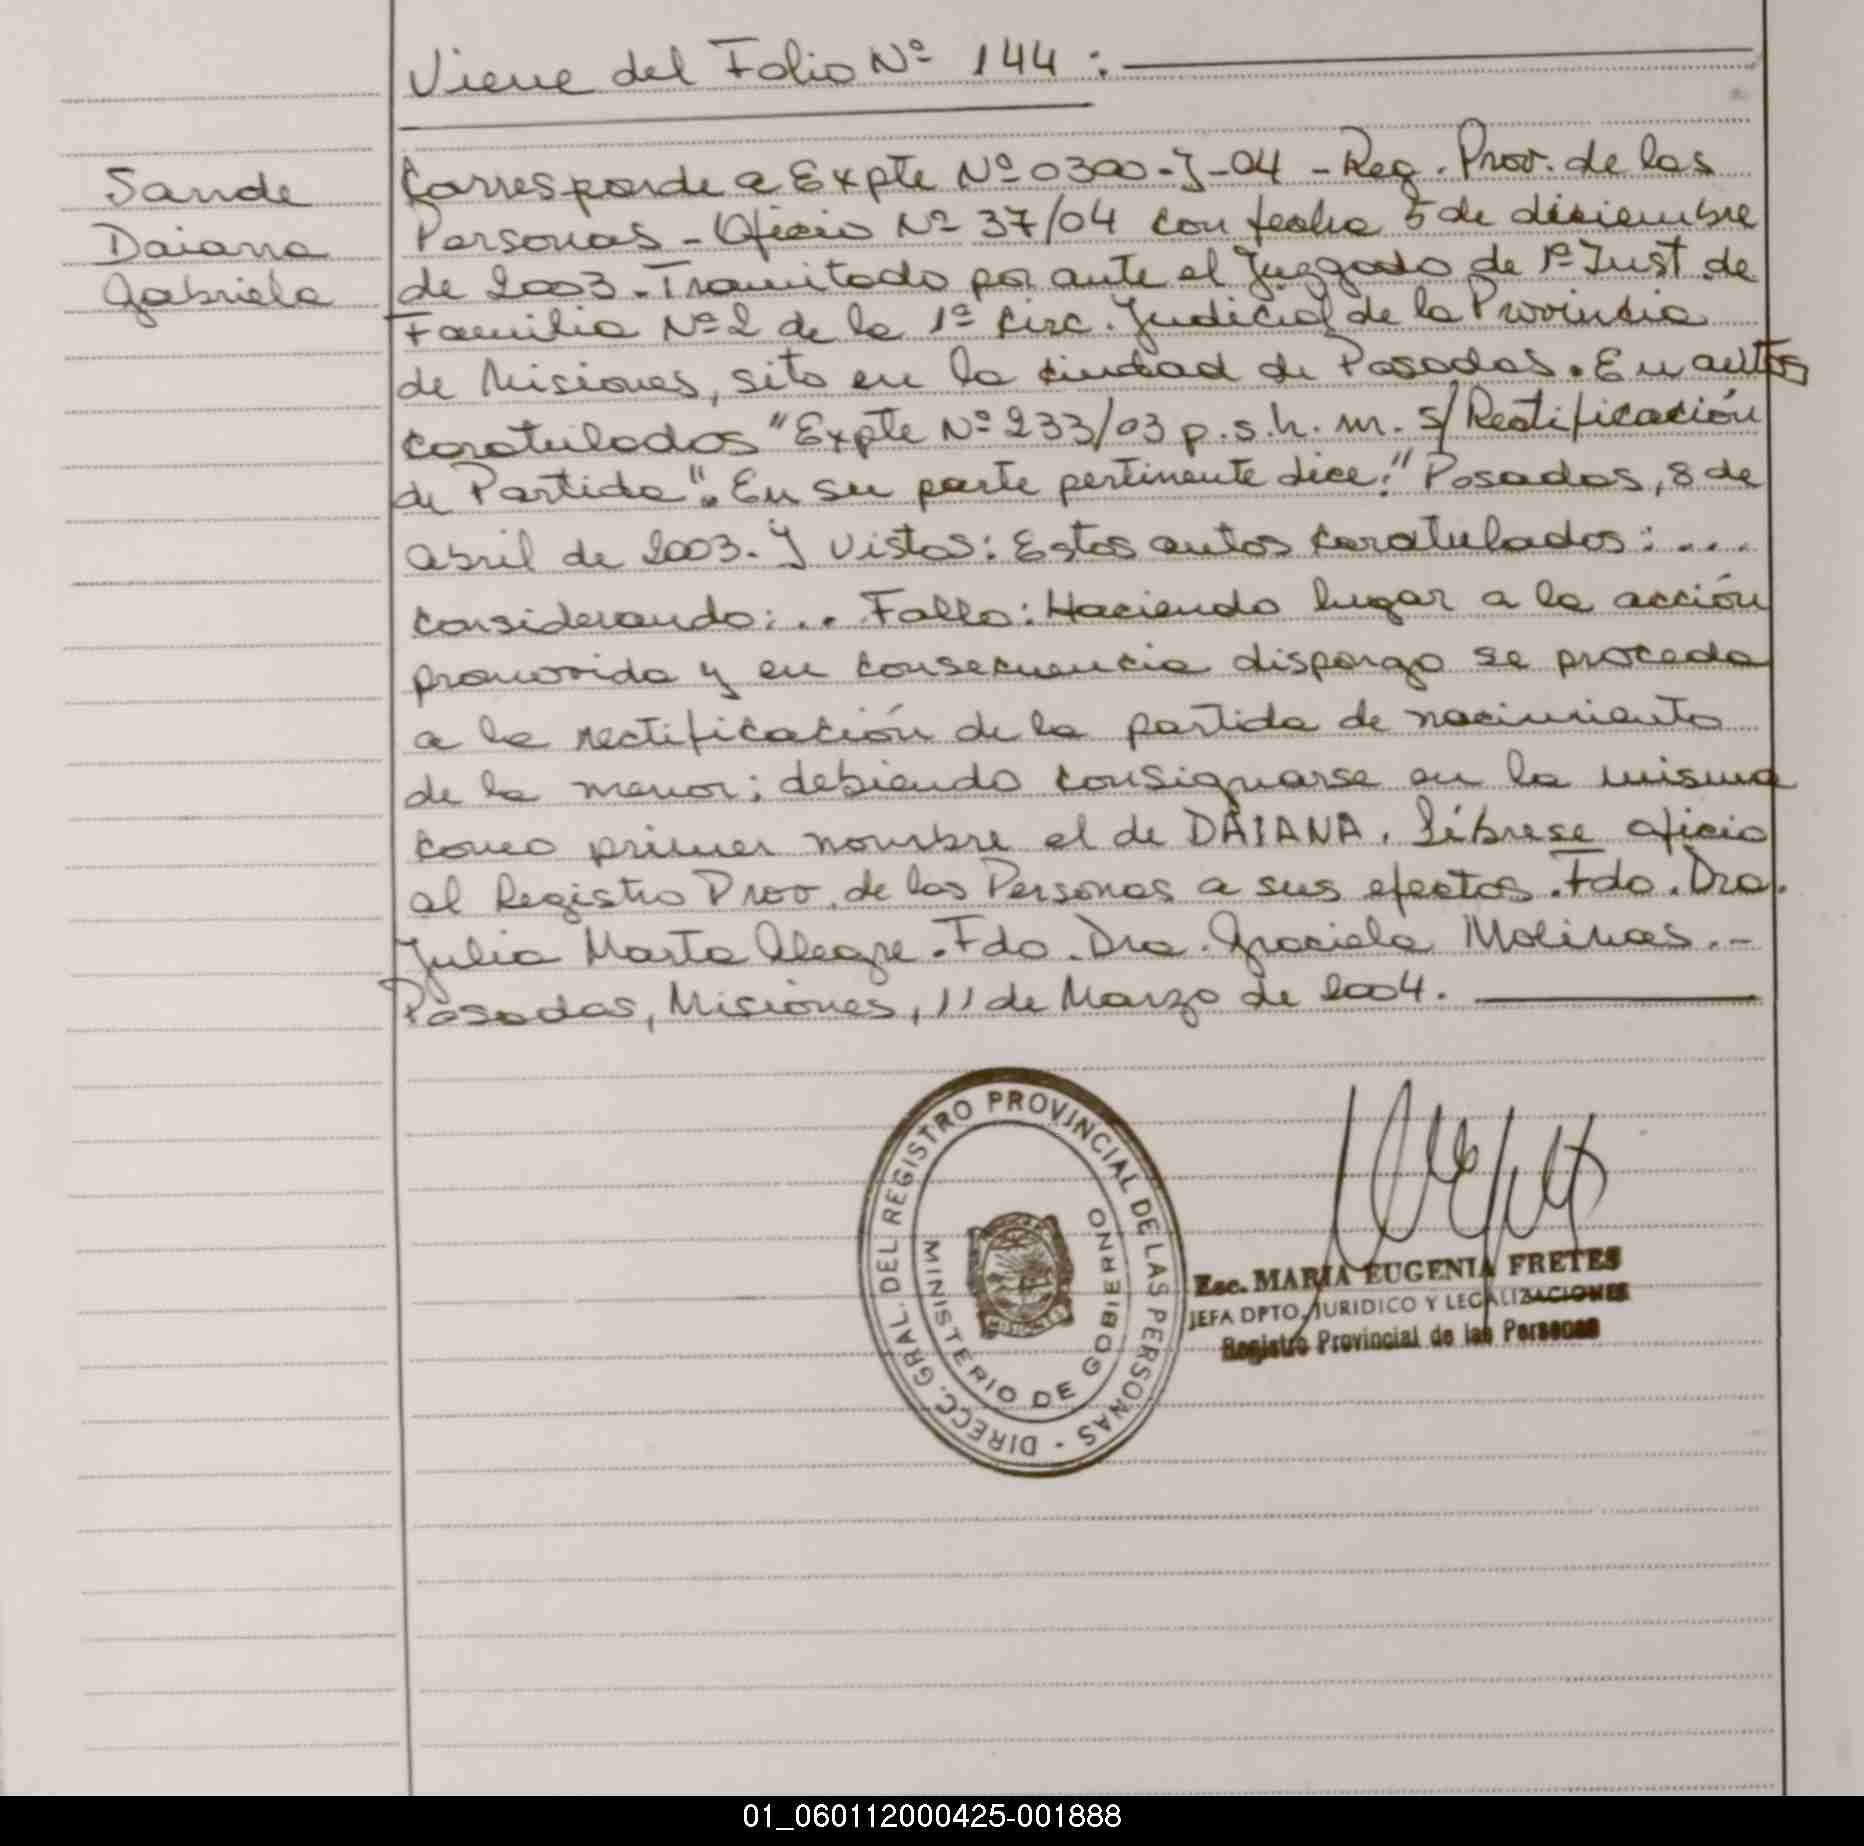 Viene del Folio Nº 144 :
Sande
Daiana
Gabriela
Corresponde a Expte Nº 0300-J-04 - Reg. Prov. de las
Personas - Oficio Nº 37/04 con fecha 5 de diciembre
de 2003. Tramitado por ante el Juzgado de 1º Inst de
Familia Nº 2 de la 1º Circ. Judicial de la Provincia
de Misiones, sito en la ciudad de Posadas. En autos
caratulados "Expte Nº 233/03 p.s.h.m. s/ Rectificación
de Partida". En su parte pertinente dice: "Posadas, 8 de
abril de 2003. Y Vistos: Estos autos caratulados: ...
considerando: .. Fallo: Haciendo lugar a la acción
promovida y en consecuencia dispongo se proceda
a la rectificación de la partida de nacimiento
de la menor; debiendo consignarse en la misma
como primer nombre el de DAIANA. Líbrese oficio
al Registro Prov. de las Personas a sus efectos. Fdo. Dra.
Julia Marta Alegre. Fdo. Dra. Graciela Molinas. -
Posadas, Misiones, 11 de Marzo de 2004.
DIRECC. GRAL. DEL REGISTRO PROVINCIAL DE LAS PERSONAS -
MINISTERIO DE GOBIERNO
MISIONES
Esc. MARIA EUGENIA FRETES
JEFA DPTO. JURIDICO Y LEGALIZACIONES
Registro Provincial de las Personas
01_060112000425-001888